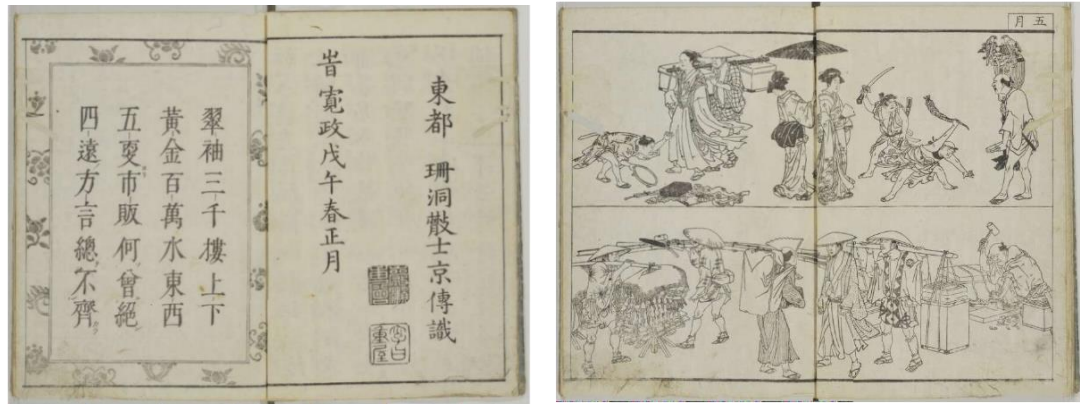 東都　珊洞散士京傳識
旹寛政戊午春正月
翠袖三千樓上下
黃金百萬水東西
五更市販何曾絕
四遠方言總不齊
五月